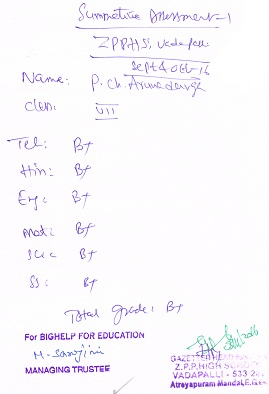 Summative Assessment-1
ZPPHS, Vadapalli
Sept & Oct-16
Name: P. Ch. Arunadurga
Class: VII
Tel: B+
Hin: B+
Eng: B+
Mat: B+
Sci: B+
SS: B+
Total grade: B+
For BIGHELP FOR EDUCATION
M. Sanyjini
MANAGING TRUSTEE
Z.P.P.HIGH SCHOOL
VADAPALLI - 533 2
Atreyapuram Mandal, E.G.